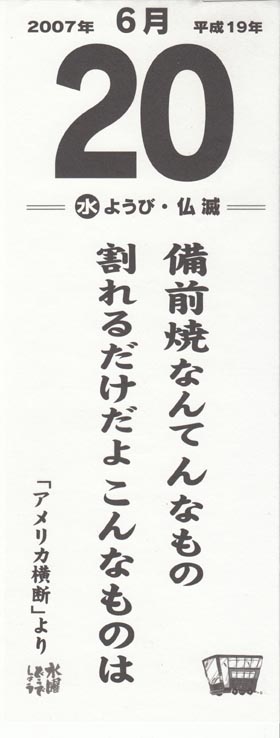 2007年 6月 平成19年
20
水ようび・仏滅
備前焼なんてんなもの
割れるだけだよこんなものは
「アメリカ横断」より
水曜
どうで
しょう